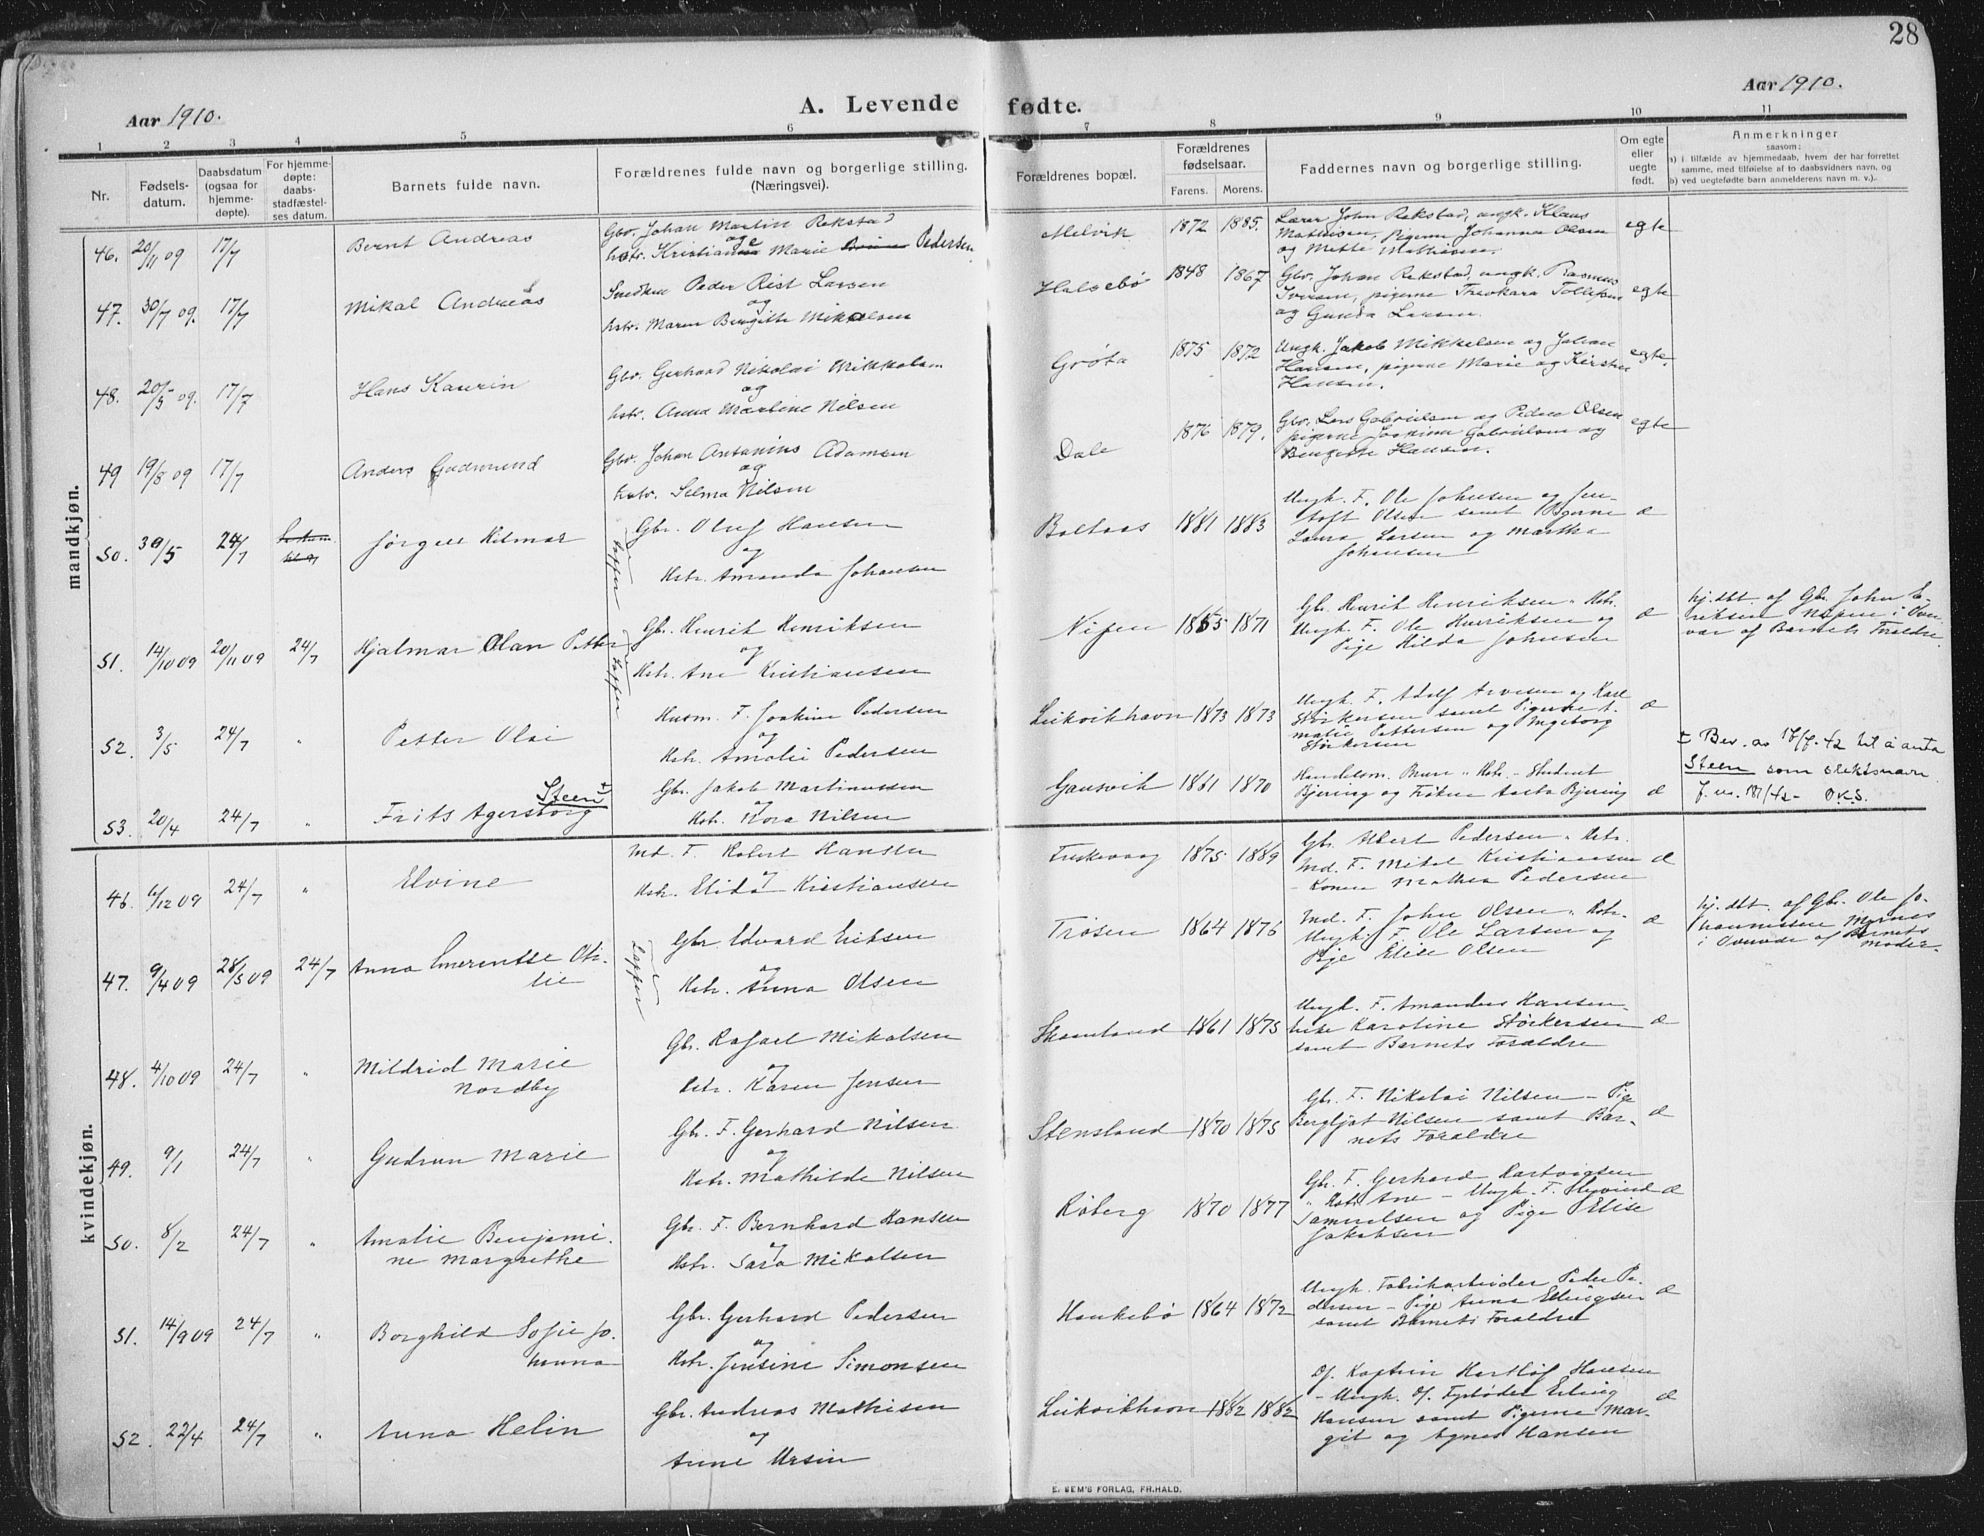 28
Aar 1910.
A. Levende fødte.
Aar 1910.
1 2 3 4 5 6 7 8 9 10 11
Nr.
Fødsels-
datum.
Daabsdatum
(ogsaa for
hjemme-
døpte).
For hjemme-
døpte:
daabs-
stadfæstel-
ses datum.
Barnets fulde navn.
Forældrenes fulde navn og borgerlige stilling.
(Næringsvei).
Forældrenes bopæl.
Forældrenes
fødselsaar.
Farens. Morens.
Faddernes navn og borgerlige stilling.
Om egte
eller
uegte
født.
Anmerkninger
saasom:
a) i tilfælde av hjemmedaab, hvem der har forrettet
samme, med tilføielse af to daabsvidners navn, og
b) ved uegtefødte barn anmelderens navn m. v.).
mandkjøn.
46. 20/11 09 17/7 Bernt Andreas
Gbr. Johan Martin Rekstad
og
hstr. Kristiane Marie Pedersen
Melvik 1872 1885.
Lærer John Rekstad, ungk. Klaus
Mathisen, pigerne Johanna Olsen
og Mette Mathisen.
egte
47. 30/7 09. 17/7 Mikal Andreas
Snedker Peder Rist Larsen
og
hstr. Maren Bergitte Mikkelsen
Halsebø 1848 1867
Gbr. Johan Rekstad, ungk. Rasmus
Iversen, pigerne Tollefsen
og Gunda Larsen.
egte
48. 20/5 09. 17/7 Hans Kaurin
Gbr. Gerhard Nikolai Mikkelsen
og
hstr. Anna Martine Nilsen
Grøta 1875 1872
Ungk. Jakob Mikkelsen og Johan
Hansen, pigerne Marie og Kirstine
Hansen.
egte.
49 19/8 09 17/7 Anders Gudmund
Gbr. Johan Antonius Adamsen
og
hstr. Selma Nilsen
Dale 1876 1879.
Gbr. Lars Gabrielsen og Peder Olsen
pigerne Joakime Gabrielsen og
Bergette Hansen.
egte
50. 30/5 24/7 Jørgen Hilmar
Gbr. Oluf Hansen
og
Hstr. Amanda Johansen
Lapper
Boltaas 1881 1883
Ungk. F. Ole Johnsen og Jen-
toft Olsen samt Pigerne
Laura Larsen og Martha
Johansen
æ
51. 14/10 09 20/11 09 24/7 Hjalmar Olan Petter
Gbr. Henrik Henriksen
og
Hstr. Ane Kristiansen
Lapper
Nipen 1865 1871
Gbr. Henrik Henriksen " Hstr.
Ungk. F. Ole Henriksen og
Pige Hilda Johnsen
æ
hj. dbt. af Gbr. John E-
riksen Nipen i Over-
vær af Barnets Foraldre
52. 3/5 24/7 " Petter Olai
Husm. F. Joakim Pedersen
og
Hstr. Amalie Pedersen
Leikvikhavn 1873 1873
Ungk. F. Adolf Arvesen og Karl
Størkersen samt Pigerne A-
malie Pettersen og Ingeborg
Størkersen
æ
53. 20/4 24/7 " Frits Agersborg Steen ±
Gbr. Jakob Martinussen
og
Hstr. Kora Nilsen
Gausvik 1861 1870
Handelsm. Bruu " Hstr. - Student
Bjering og Frøken Aasta Bjering
æ
± Bev. av 17/7-42 til å anta
Steen som slektsnavn
J. nr. 181/42- O.K.S.
kvindekjøn.
46. 6/12 09 24/7 " Elvine
Ind. F. Robert Hansen
og
Hstr. Elida Kristiansen
Fuskevaag 1875 1889
Gbr. Albert Pedersen " Hstr.
Ind. F. Mikal Kristiansen
- Konen Mathea Pedersen
æ
47. 9/4 09 28/5 09 24/7 Anna Emerentse Oti-
lie
Gbr Edvard Eriksen
og
Hstr. Anna Olsen
Lapper
Trøsen 1864 1876
Ind. F. John Olsen " Hstr.
Ungk. F. Ole Larsen og
Pige Elise Olsen
æ
hj. dbt. af Gbr. Ole Jo-
hannessen
i Overvær af Barnets
Moder-
48. 4/10 09 24/7 " Mildrid Marie
Nordby
Gbr. Rafael Mikalsen
og
Hstr. Karen Jensen
Skomland 1861 1875
Ungk. F. Amandus Hansen
Karoline Størkersen
samt Barnets Foraldre
æ
49. 9/1 24/7 " Gudrun Marie
Gbr. F. Gerhard Nilsen
og
Hstr. Mathilde Nilsen
Stensland 1870 1875
Gbr. F. Nikolai Nilsen - Pige
Bergljot Nilsen samt Bar-
nets Foraldre
æ
50. 8/2 24/7 " Amalie Benjami-
ne Margrethe
Gbr. F. Bernhard Hansen
og
Hstr. Sara Mikalsen
Røberg 1870 1877
Gbr. F. Gerhard Hartvigsen
" Hstr Ane - Ungk. F. Hagvind
Samuelsen og Pige Elise
Jakobsen
æ
51. 14/9 09 24/7 " Borghild Sofie Jo-
hanna
Gbr. Gerhard Pedersen
og
Hstr. Jensine Simonsen
Haukebø 1864 1872
Ungk. Fabrikarbeider Peder Pe-
dersen - Pige Anna Ellingsen
samt Barnets Foraldre
æ
52. 22/4 24/7 " Anna Helin
Gbr. Andreas Mathisen
og
Anne Ursin
Leikvikhavn 1882 1882
Of. Kaptein Hartløf Hansen
- Ungk. Of. Fyrbøder Erling
Hansen samt Pigerne Mar-
git og Agnes Hansen
æ
E. SEM'S FORLAG, FR.HALD.